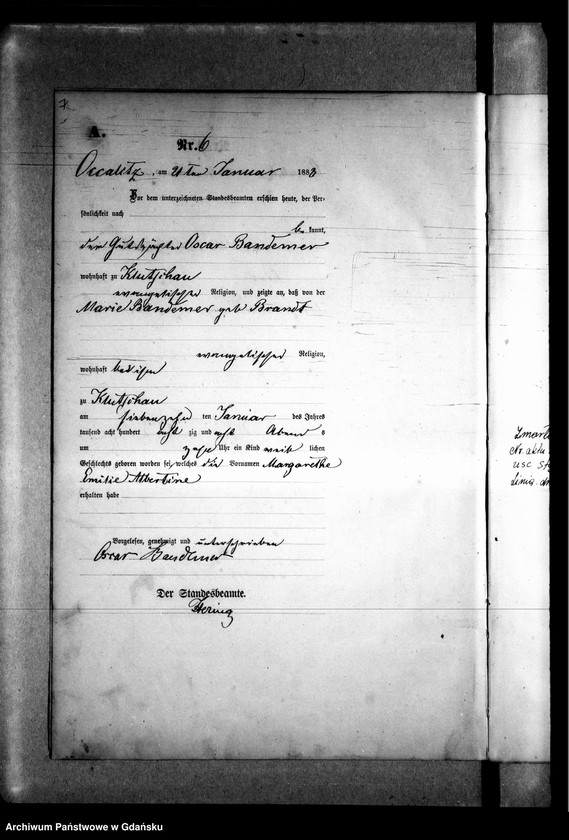 A.
Nr. 6
Occalitz, am 21ten Januar 1888
Vor dem unterzeichneten Standesbeamten erschien heute, der Per-
sönlichkeit nach
be kannt,
der Gutsbesitzer Oscar Bandemer
wohnhaft zu Klutschau
evangelischer Religion, und zeigte an, daß von der
Marie Bandemer geb Brandt
evangelischer Religion,
wohnhaft bei ihm
zu Klutschau
am siebenzehn ten Januar des Jahres
tausend acht hundert acht zig und acht Abend s
um zehn Uhr ein Kind weib lichen
Geschlechts geboren worden sei, welches die Vornamen Margarethe
Emilie Albertine
erhalten habe
Vorgelesen, genehmigt und unterschrieben
Oscar Bandemer
Der Standesbeamte.
Hering
Zmarła
Nr. aktu
USC
Archiwum Państwowe w Gdańsku